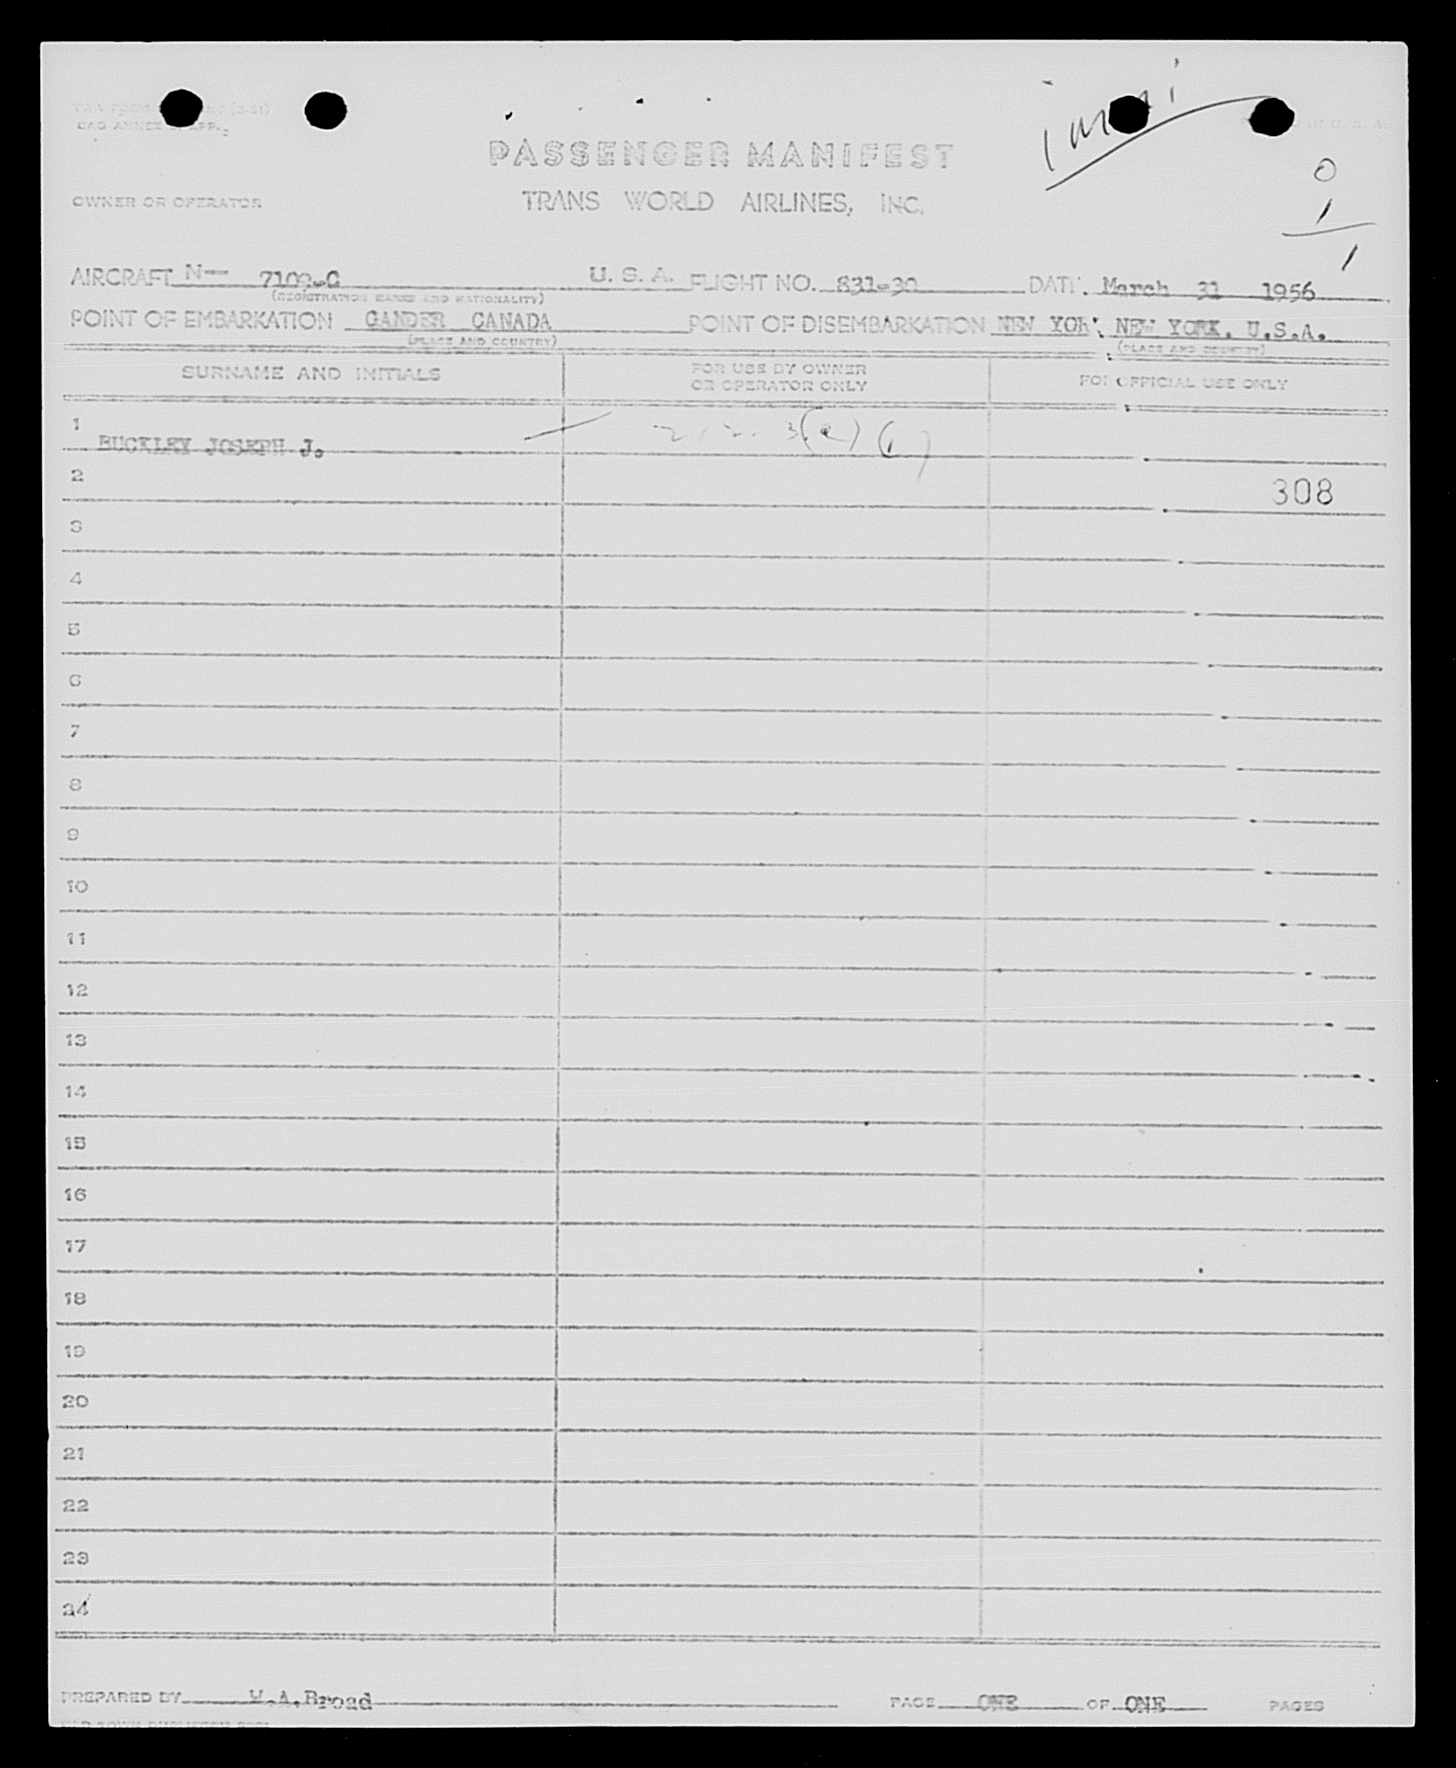 CAO ANNEX APP.
immi
PASSENGER MANIFEST
0
OWNER OR OPERATOR TRANS WORLD AIRLINES, INC.
1
1
AIRCRAFT N— 7102-C U. S. A. FLIGHT NO. 831-30 DATE March 31 1956
(REGISTRATION MARKS AND NATIONALITY)
POINT OF EMBARKATION GANDER CANADA POINT OF DISEMBARKATION NEW YORK NEW YORK, U.S.A.
(PLACE AND COUNTRY) (PLACE AND COUNTRY)
SURNAME AND INITIALS FOR USE BY OWNER OR OPERATOR ONLY FOR OFFICIAL USE ONLY
1 BUCKLEY JOSEPH J.
2 308
3
4
5
6
7
8
9
10
11
12
13
14
15
16
17
18
19
20
21
22
23
24
PREPARED BY W.A.Broad PAGE ONE OF ONE PAGES